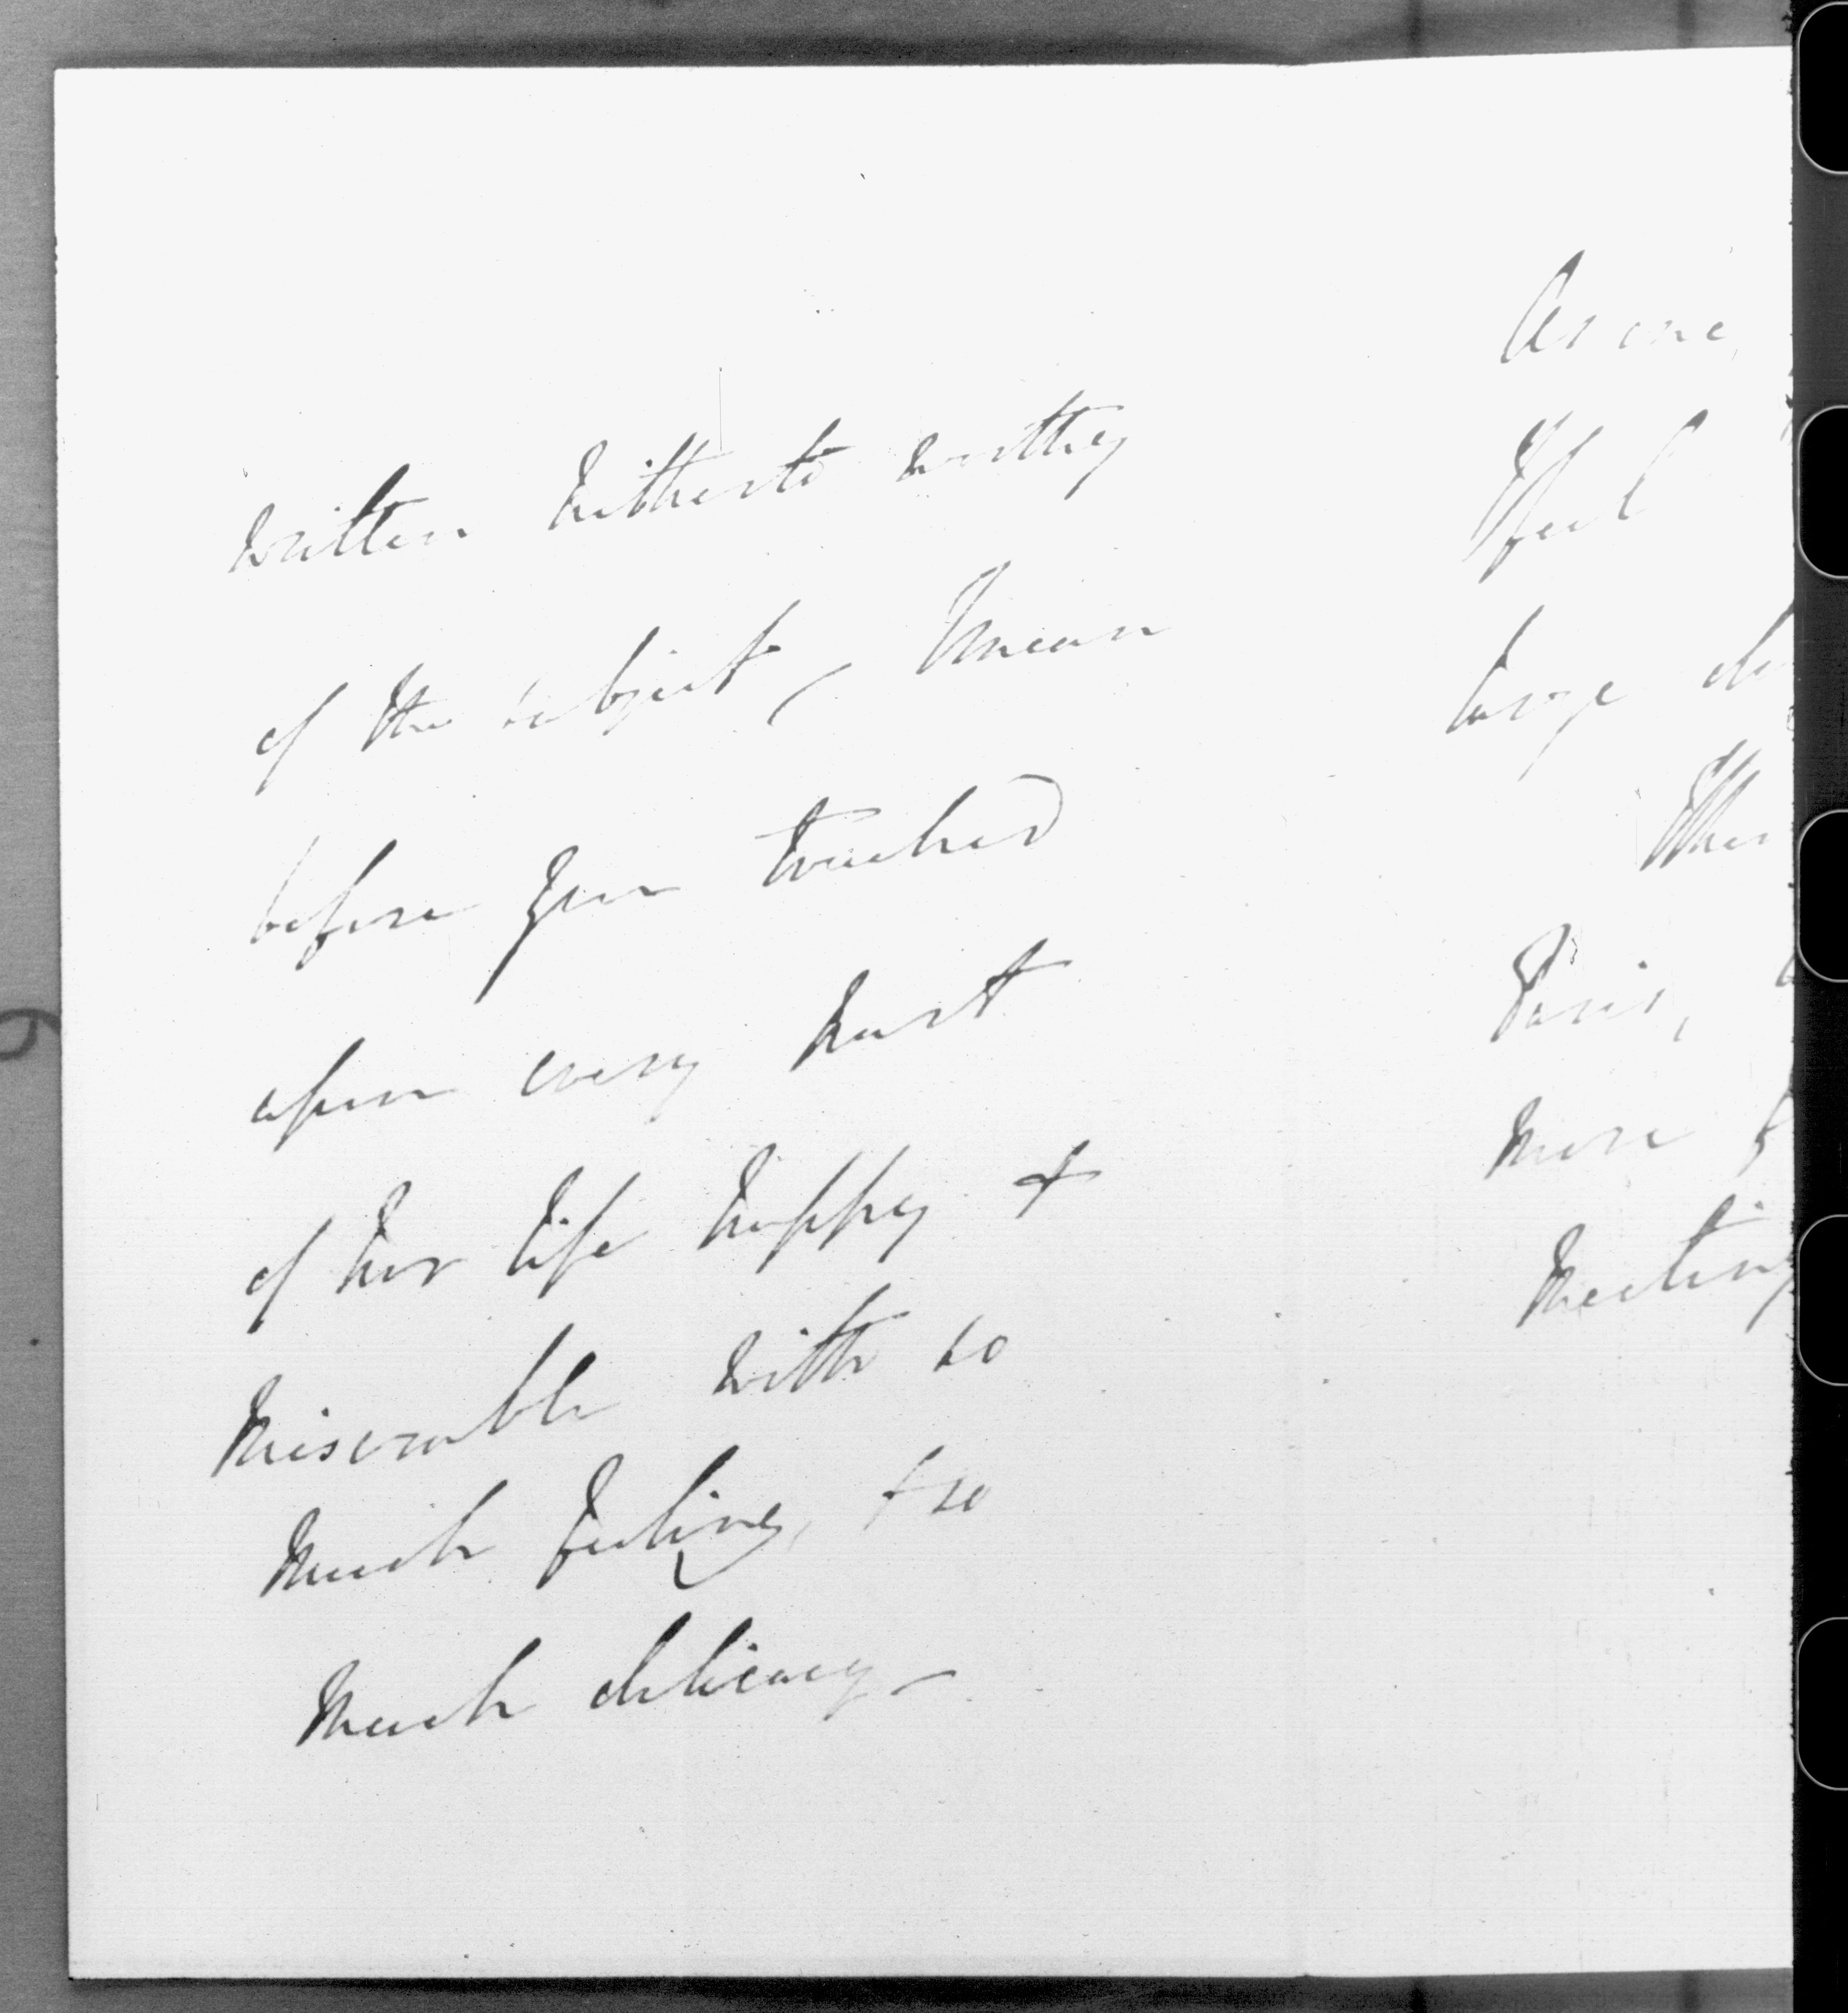 written hitherto worthy
of the subject, I mean
before you touched
upon every part
of her life happy &
miserable with so
much feeling, & so
much delicacy—
As one,
I feel
large
Paris,
more
meeting